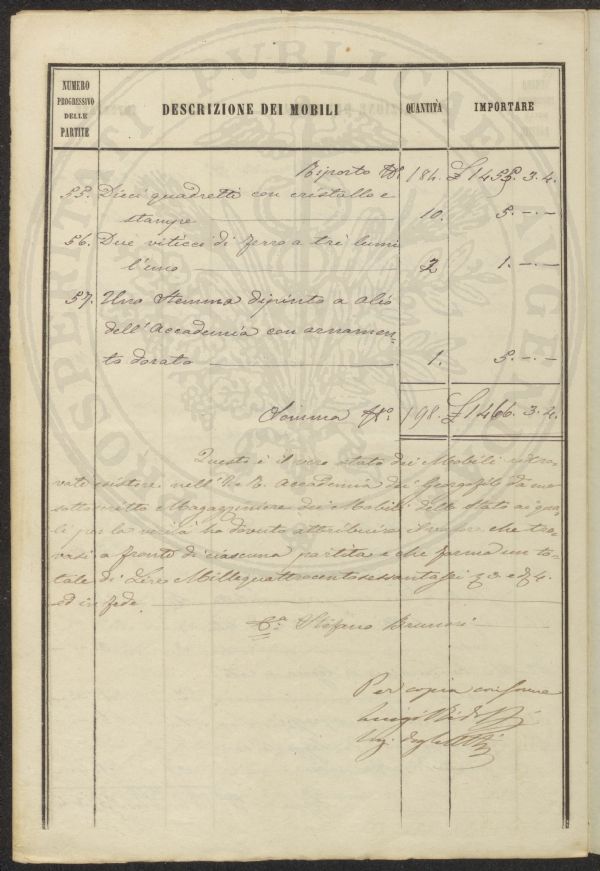 PROSPERITATI PVBLICAE AVGENDAE
NUMERO
PROGRESSIVO
DELLE
PARTITE
DESCRIZIONE DEI MOBILI
QUANTITÀ
IMPORTARE
Riporto N.º 184. £ 1455. 3. 4.
55. Dieci quadretti con cristallo e
stampe 10. 5. -. -.
56. Due viticci di ferro a trè lumi
l'uno 2 1. -. -.
57. Uno Stemma dipinto a olio
dell'Accademia con ornamen-
to dorato 1. 5. -. -.
Somma N.º 198. £ 1466. 3. 4.
Questo è il vero stato dei Mobili ritro-
vati esistere nell'I. e R. Accademia dei Georgofili da me
sottoscritto Magazziniere dei Mobili dello Stato ai qua-
li per la verità ho dovuto attribuire il valore che tro-
vasi a fronte di ciascuna partita e che forma un to-
tale di Lire Millequattrocentosessantasei 3 e 4.
ed in fede.
Stefano Brunori
Per copia conforme
Luigi
Ing.